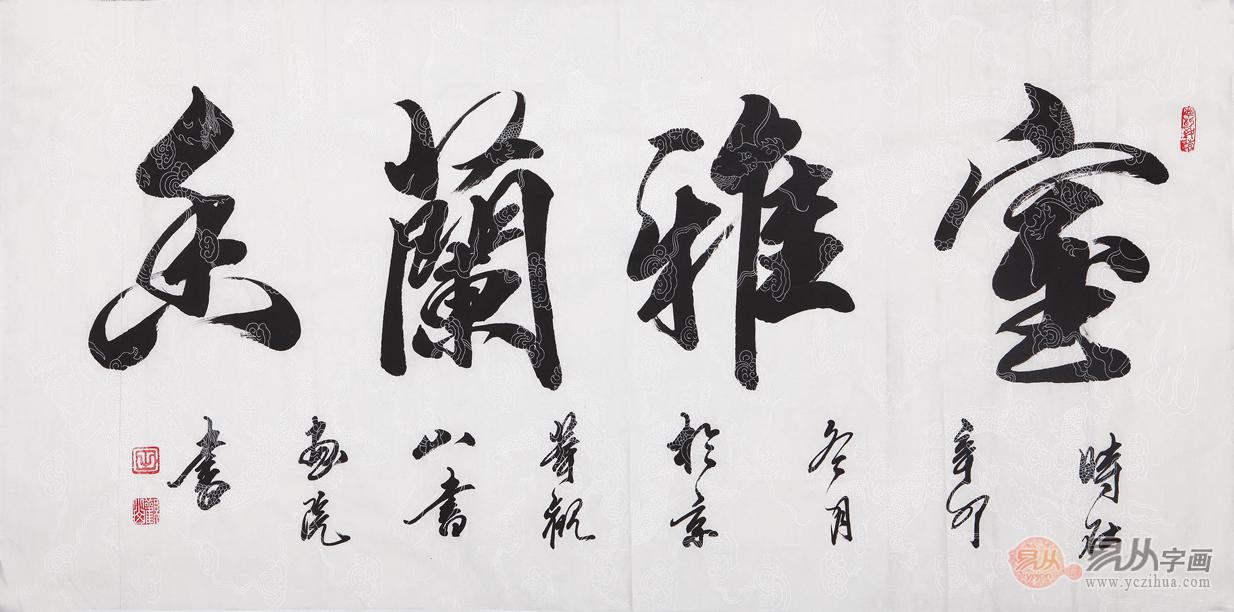 室雅蘭香
時在
辛卯
冬月
於京
華觀
山書
畫院
書
易从
易从字画
www.yczihua.com